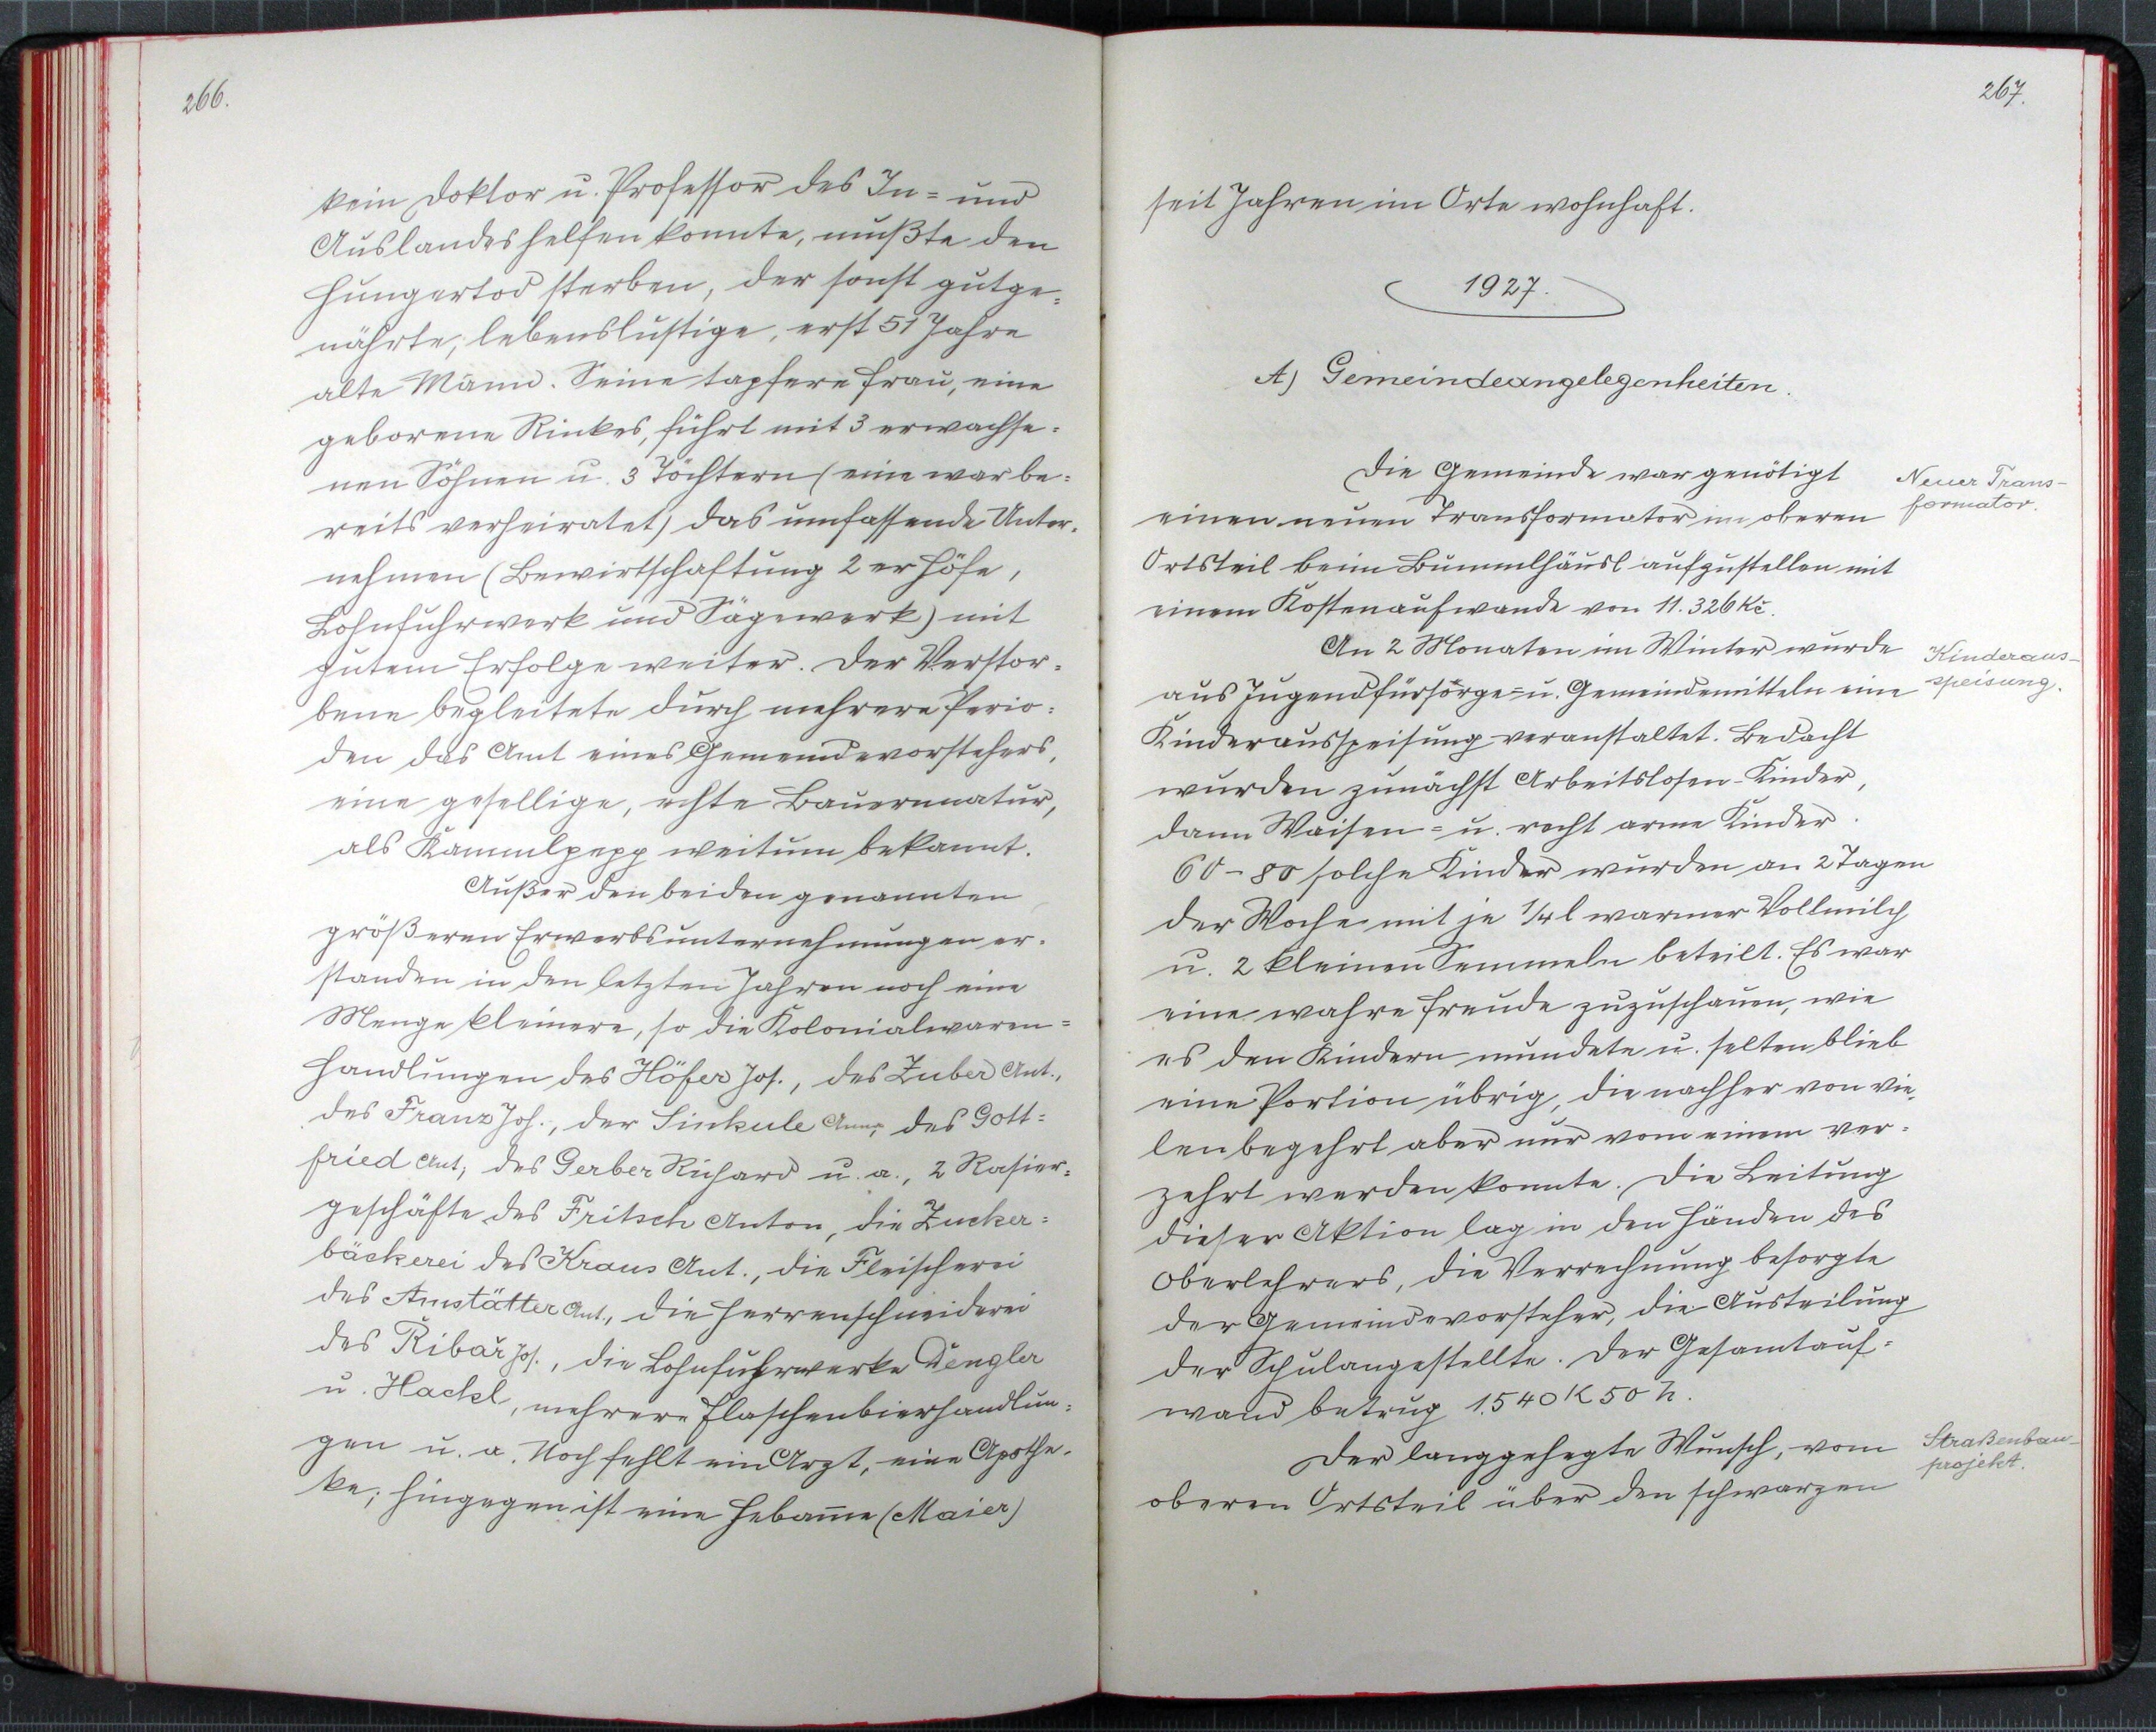 266.
kein Doktor u. Professor des In= und
Auslandes helfen konnte, mußte den
Hungertod sterben, der sonst gutge=
nährte, lebenslustige, erst 51 Jahre
alte Mann. Seine tapfere Frau, eine
geborene Rinkes, führt mit 3 erwachse=
nen Söhnen u. 3 Töchtern (eine war be=
reits verheiratet) das umfassende Unter=
nehmen (Bewirtschaftung 2er Höfe,
Lohnfuhrwerk und Sägewerk) mit
gutem Erfolge weiter. Der Verstor=
bene begleitete durch mehrere Perio=
den das Amt eines Gemeindevorstehers,
eine gesellige, echte Bauernnatur,
als Kammlpepp weitum bekannt.
Außer den beiden genannten
größeren Erwerbsunternehmungen er=
standen in den letzten Jahren noch eine
Menge kleinere, so die Kolonialwaren=
handlungen des Höfer Jos., des Zuber Ant.,
des Franz Joh., der Sinkule Anna, des Gott=
fried Ant, des Gerber Richard u. a., 2 Rasier=
geschäfte des Fritsch Anton, die Zucker=
bäckerei des Kraus Ant., die Fleischerei
des Amstätter Ant., die Herrenschneiderei
des Ribař Jos., die Lohnfuhrwerke Dengler
u. Hackl, mehrere Flaschenbierhandlun=
gen u. a. Noch fehlt ein Arzt, eine Apothe=
ke; hingegen ist eine Hebam̅e (Maier)
267.
seit Jahren im Orte wohnhaft.
1927.
A) Gemeindeangelegenheiten.
Die Gemeinde war genötigt
einen neuen Transformator im oberen
Ortsteil beim Bummlhäusl aufzustellen mit
einem Kostenaufwande von 11.326 Kč.
Neuer Trans-
formator.
An 2 Monaten im Winter wurde
aus Jugendfürsorge= u. Gemeindemitteln eine
Kinderausspeisung veranstaltet. Bedacht
wurden zunächst Arbeitslosen-Kinder,
dann Waisen= u. recht arme Kinder.
60-80 solche Kinder wurden an 2 Tagen
der Woche mit je 1/4 l warmer Vollmilch
u. 2 kleinen Semmeln beteilt. Es war
eine wahre Freude zuzuschauen, wie
es den Kindern mundete u. selten blieb
eine Portion übrig, die nachher von vie=
len begehrt aber nur vom einem ver=
zehrt werden konnte. Die Leitung
dieser Aktion lag in den Händen des
Oberlehrers, die Verrechnung besorgte
der Gemeindevorsteher, die Austeilung
der Schulangestellte. Der Gesamtauf=
wand betrug 1.540 K 50 h.
Kinderaus-
speisung.
Der langgehegte Wunsch, vom
oberen Ortsteil über den schwarzen
Straßenbau-
projekt.